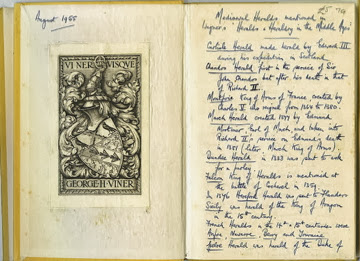 August 1955
VINERI VISQVE
GEORGE·H·VINER
£5
Mediaeval Heralds mentioned in
Wagner's 'Heralds & Heraldry in the Middle Ages'
Carlisle Herald made herald by Edward III
during his expedition in Scotland.
Chandos Herald first in the service of Sir
John Chandos but after his death in that
of Richard II.
Montjoie King of Arms of France, created by
Charles V who reigned from 1364 to 1380.
March Herald created 1377 by Edmund
Mortimer, Earl of March, and taken into
Richard II's service on Edmund's death
in 1381 (later March King of Arms).
Dundee Herald in 1333 was sent to ask
for a parley
Falcon King of Heralds is mentioned at
the battle of in 1359.
In 1376 Hereford Herald was sent to Flanders
Sicily was herald of the King of Aragon
in the 15th century.
French Heralds in the 14th & 15th centuries were
Anjou Navarre, Berry and Touraine
Herald was herald of the Duke of